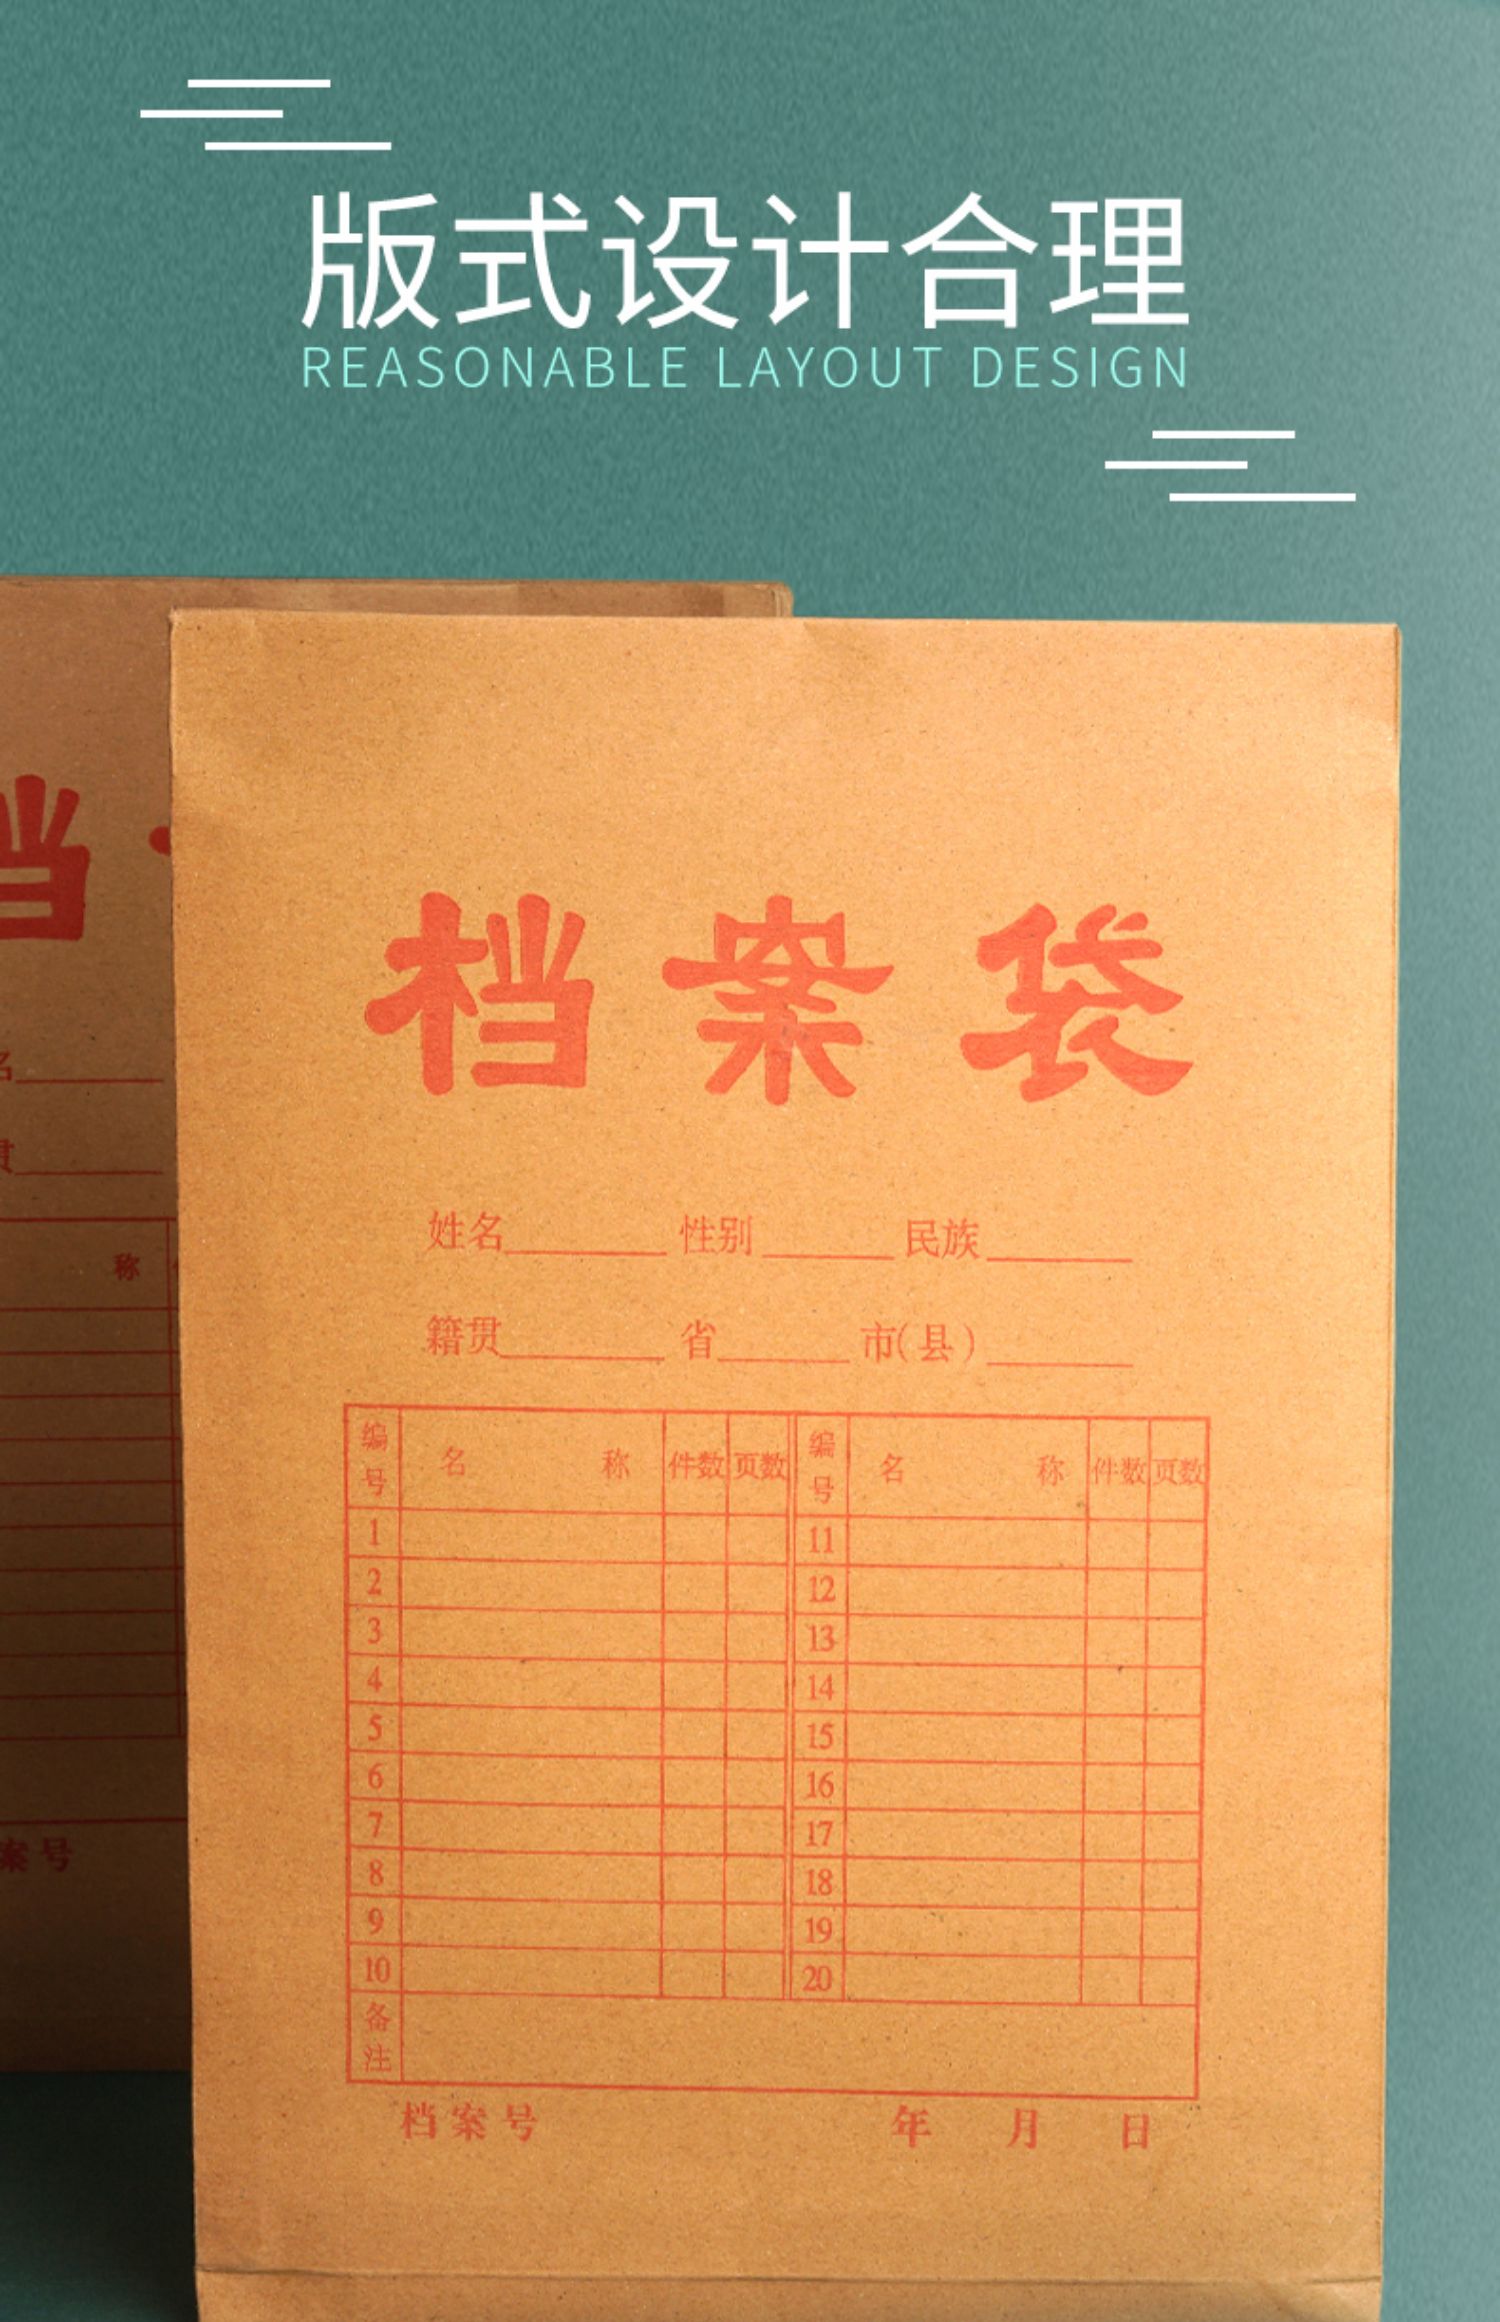 版式设计合理
REASONABLE LAYOUT DESIGN
档案袋
姓名 性别 民族
籍贯 省 市(县)
编号 名称 件数 页数 编号 名称 件数 页数
1 11
2 12
3 13
4 14
5 15
6 16
7 17
8 18
9 19
10 20
备注
档案号 年 月 日
档
名
贯
称
案号